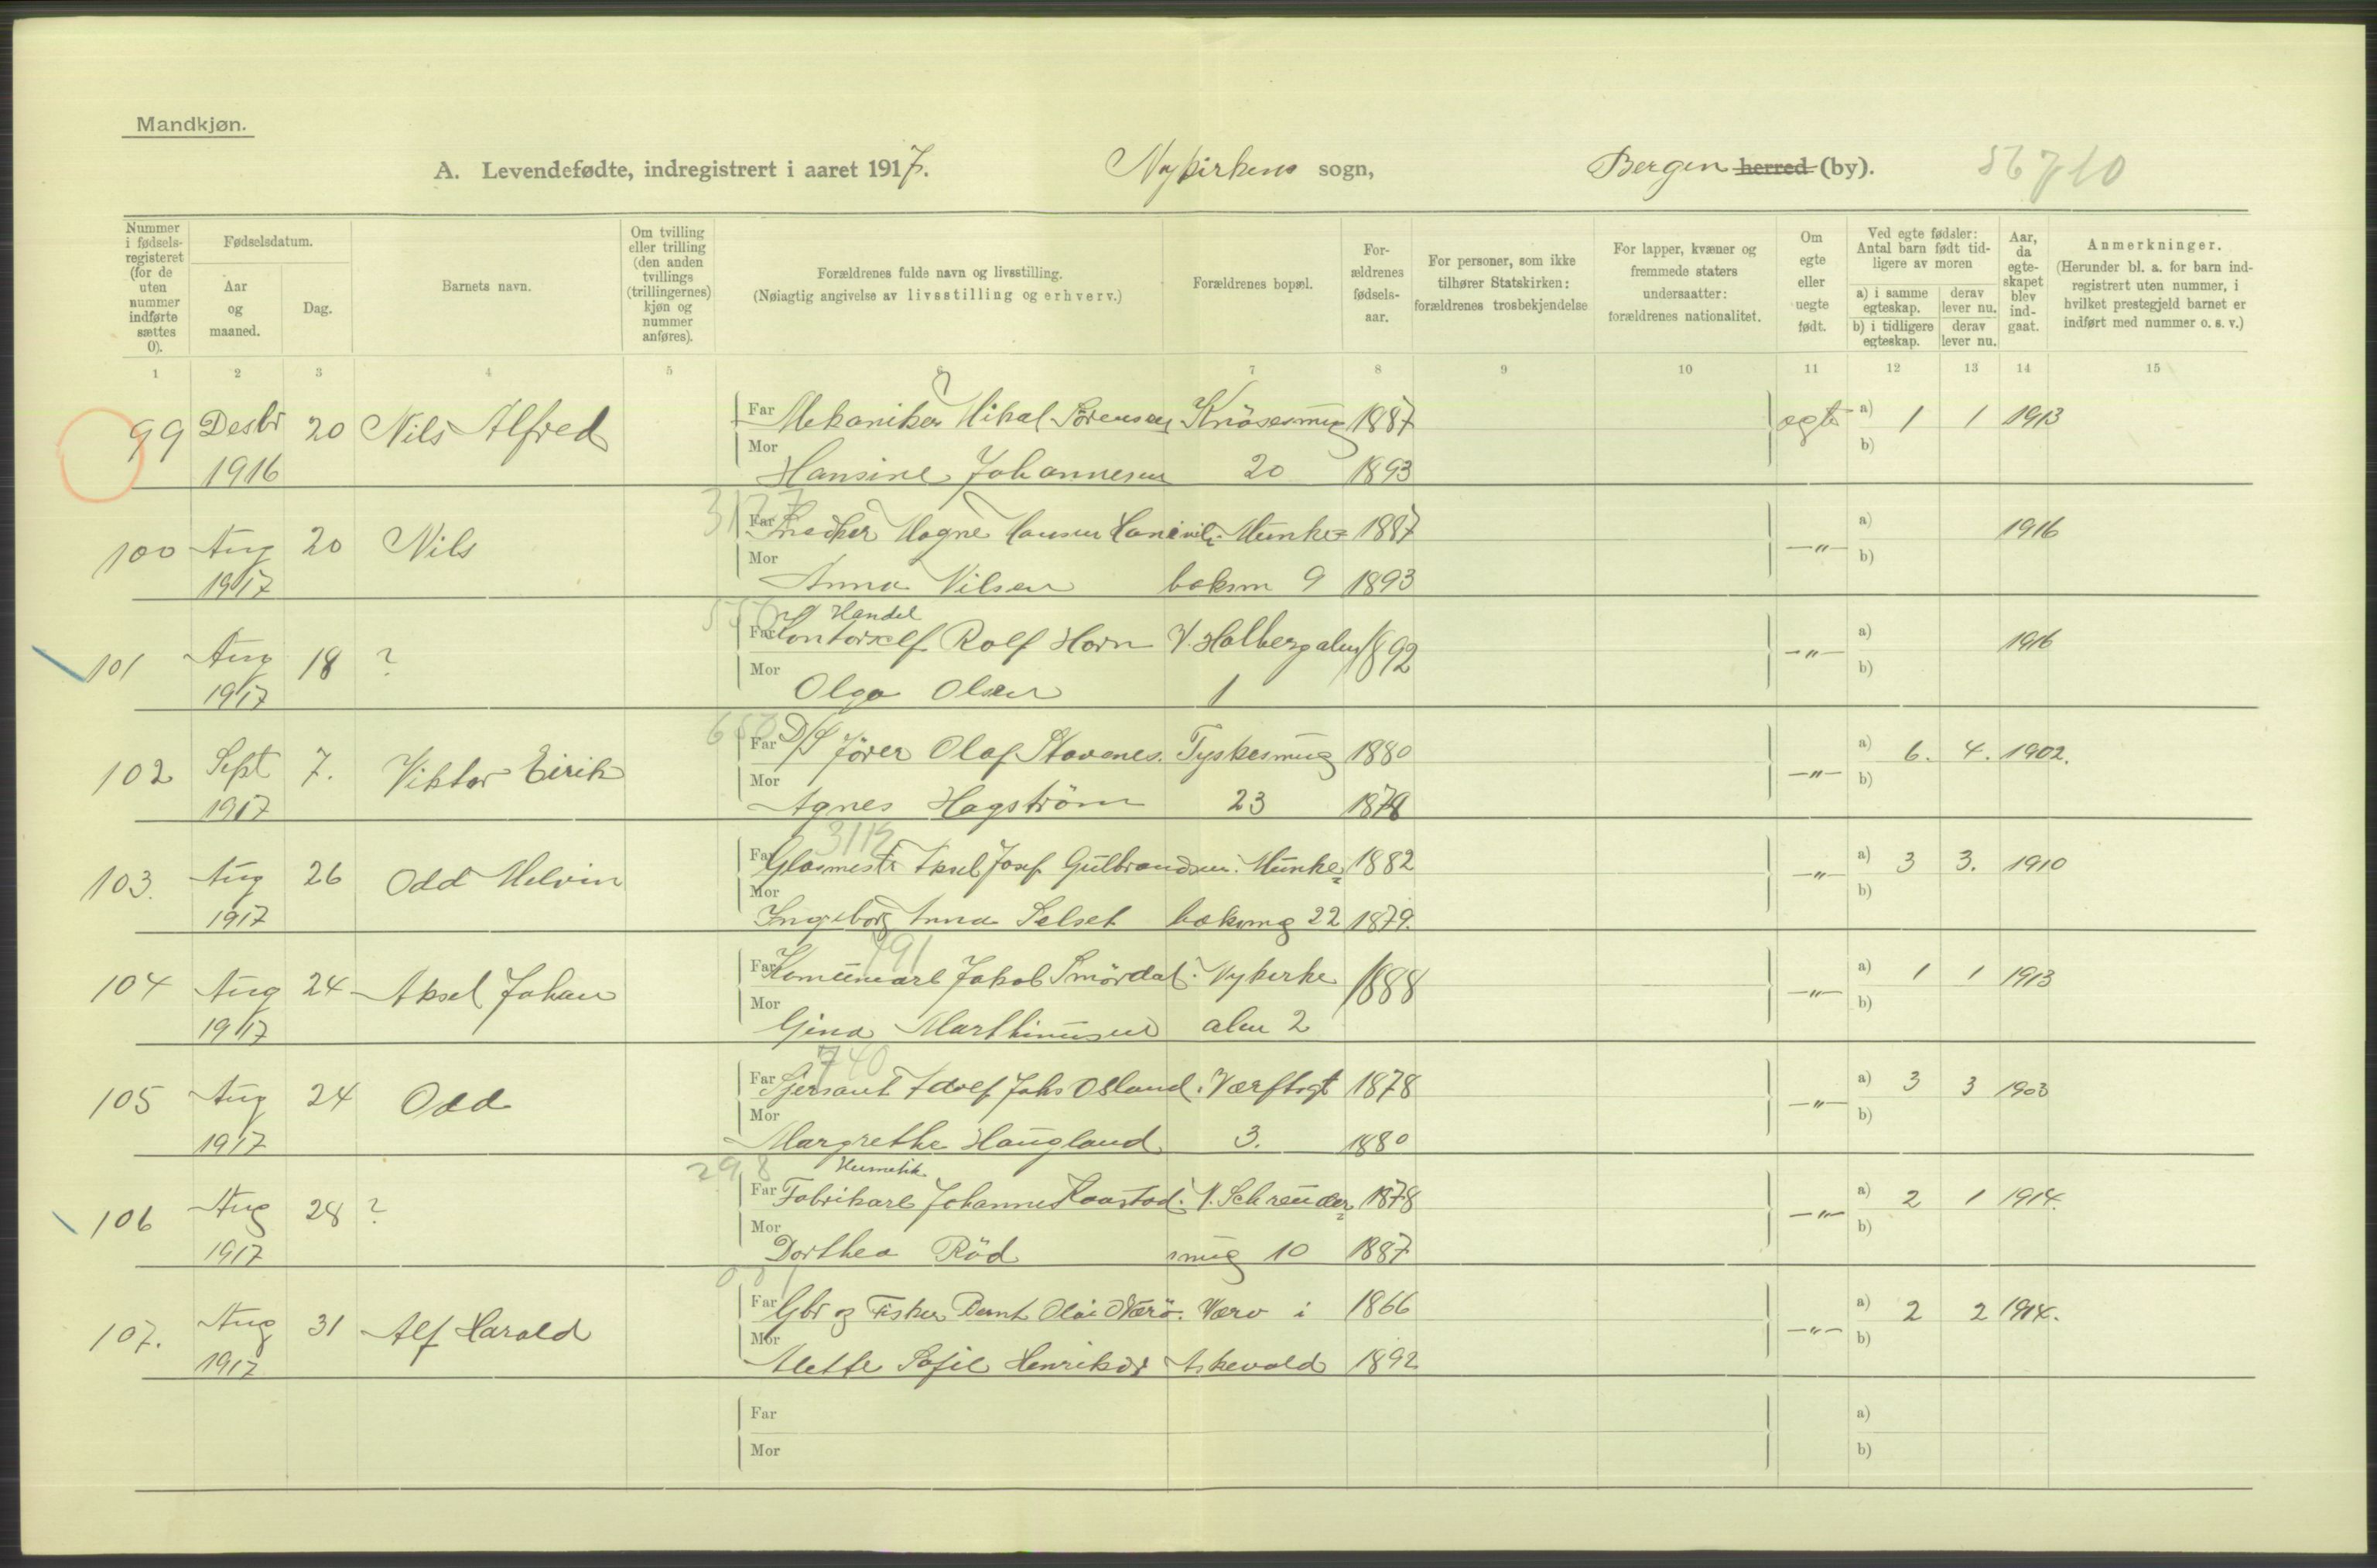 Mandkjøn.
A. Levendefødte, indregistrert i aaret 1917. Nykirkens sogn, Bergen herred (by). 56710
Nummer i fødsels-registeret (for de uten nummer indførte sættes 0).
Fødselsdatum.
Aar og maaned.
Dag.
Barnets navn.
Om tvilling eller trilling (den anden tvillings (trillingernes) kjøn og nummer anføres).
Forældrenes fulde navn og livsstilling.
(Nøiagtig angivelse av livsstilling og erhverv.)
Forældrenes bopæl.
For-ældrenes fødsels-aar.
For personer, som ikke tilhører Statskirken: forældrenes trosbekjendelse
For lapper, kvæner og fremmede staters undersaatter: forældrenes nationalitet.
Om egte eller uegte født.
Ved egte fødsler: Antal barn født tid-ligere av moren
a) i samme egteskap. derav lever nu.
b) i tidligere egteskap. derav lever nu.
Aar, da egte-skapet blev ind-gaat.
Anmerkninger.
(Herunder bl. a. for barn ind-registrert uten nummer, i hvilket prestegjeld barnet er indført med nummer o. s. v.)
1 2 3 4 5 6 7 8 9 10 11 12 13 14 15
99 Desbr 20 Nils Alfred Far Mekaniker Mikal Sörensen Knösesmug 1887 egte a) 1 1 1913
1916 Mor Hansine Johannesen 20 1893 b)
100 Aug 20 Nils Far Snedker Magne Hansen Munke= 1887 —"— a) 1916
1917 Mor Anna Nilsen beksm 9 1893 b)
Handel
101 Aug 18 ? Far Kontorself Rolf Horn V. Holbergalm 1892 —"— a) 1916
1917 Mor Olga Olsen 1 b)
102 Sept 7. Viktor Eirik Far D/S förer Olaf Stavenes. Tyskesmug 1880 —"— a) 6. 4. 1902.
1917 Mor Agnes Hagström 23 1878 b)
3112
103. Aug 26 Odd Melvin Far Glasmestr Aksel Josef Gulbrandsen. Munke= 1882 —"— a) 3 3. 1910
1917 Mor Ingeborg Anna Selset beksmg 22 1879. b)
791
104 Aug 24 Aksel Johan Far Jakob Smördal. Nykirke 1888 —"— a) 1 1 1913
1917 Mor Gina Marthinusen alm 2 b)
740
105 Aug 24 Odd Far Sjersant Adolf Johs Osland. Værftsgt 1878 —"— a) 3 3 1903
1917 Mor Margrethe Haugland 3. 1880 b)
298 Hermetik
106 Aug 28 ? Far Fabrikarb Johannes Kaastad. N. Schreuder= 1878 —"— a) 2 1 1914.
1917 Mor Dorthea Röd smug 10 1887 b)
107. Aug 31 Alf Harald Far Gbr og Fisker Bernt Olai Værö. Værö i 1866 —"— a) 2 2 1914.
1917 Mor Alette Sofie Henriksdr Askevold 1892 b)
Far a)
Mor b)